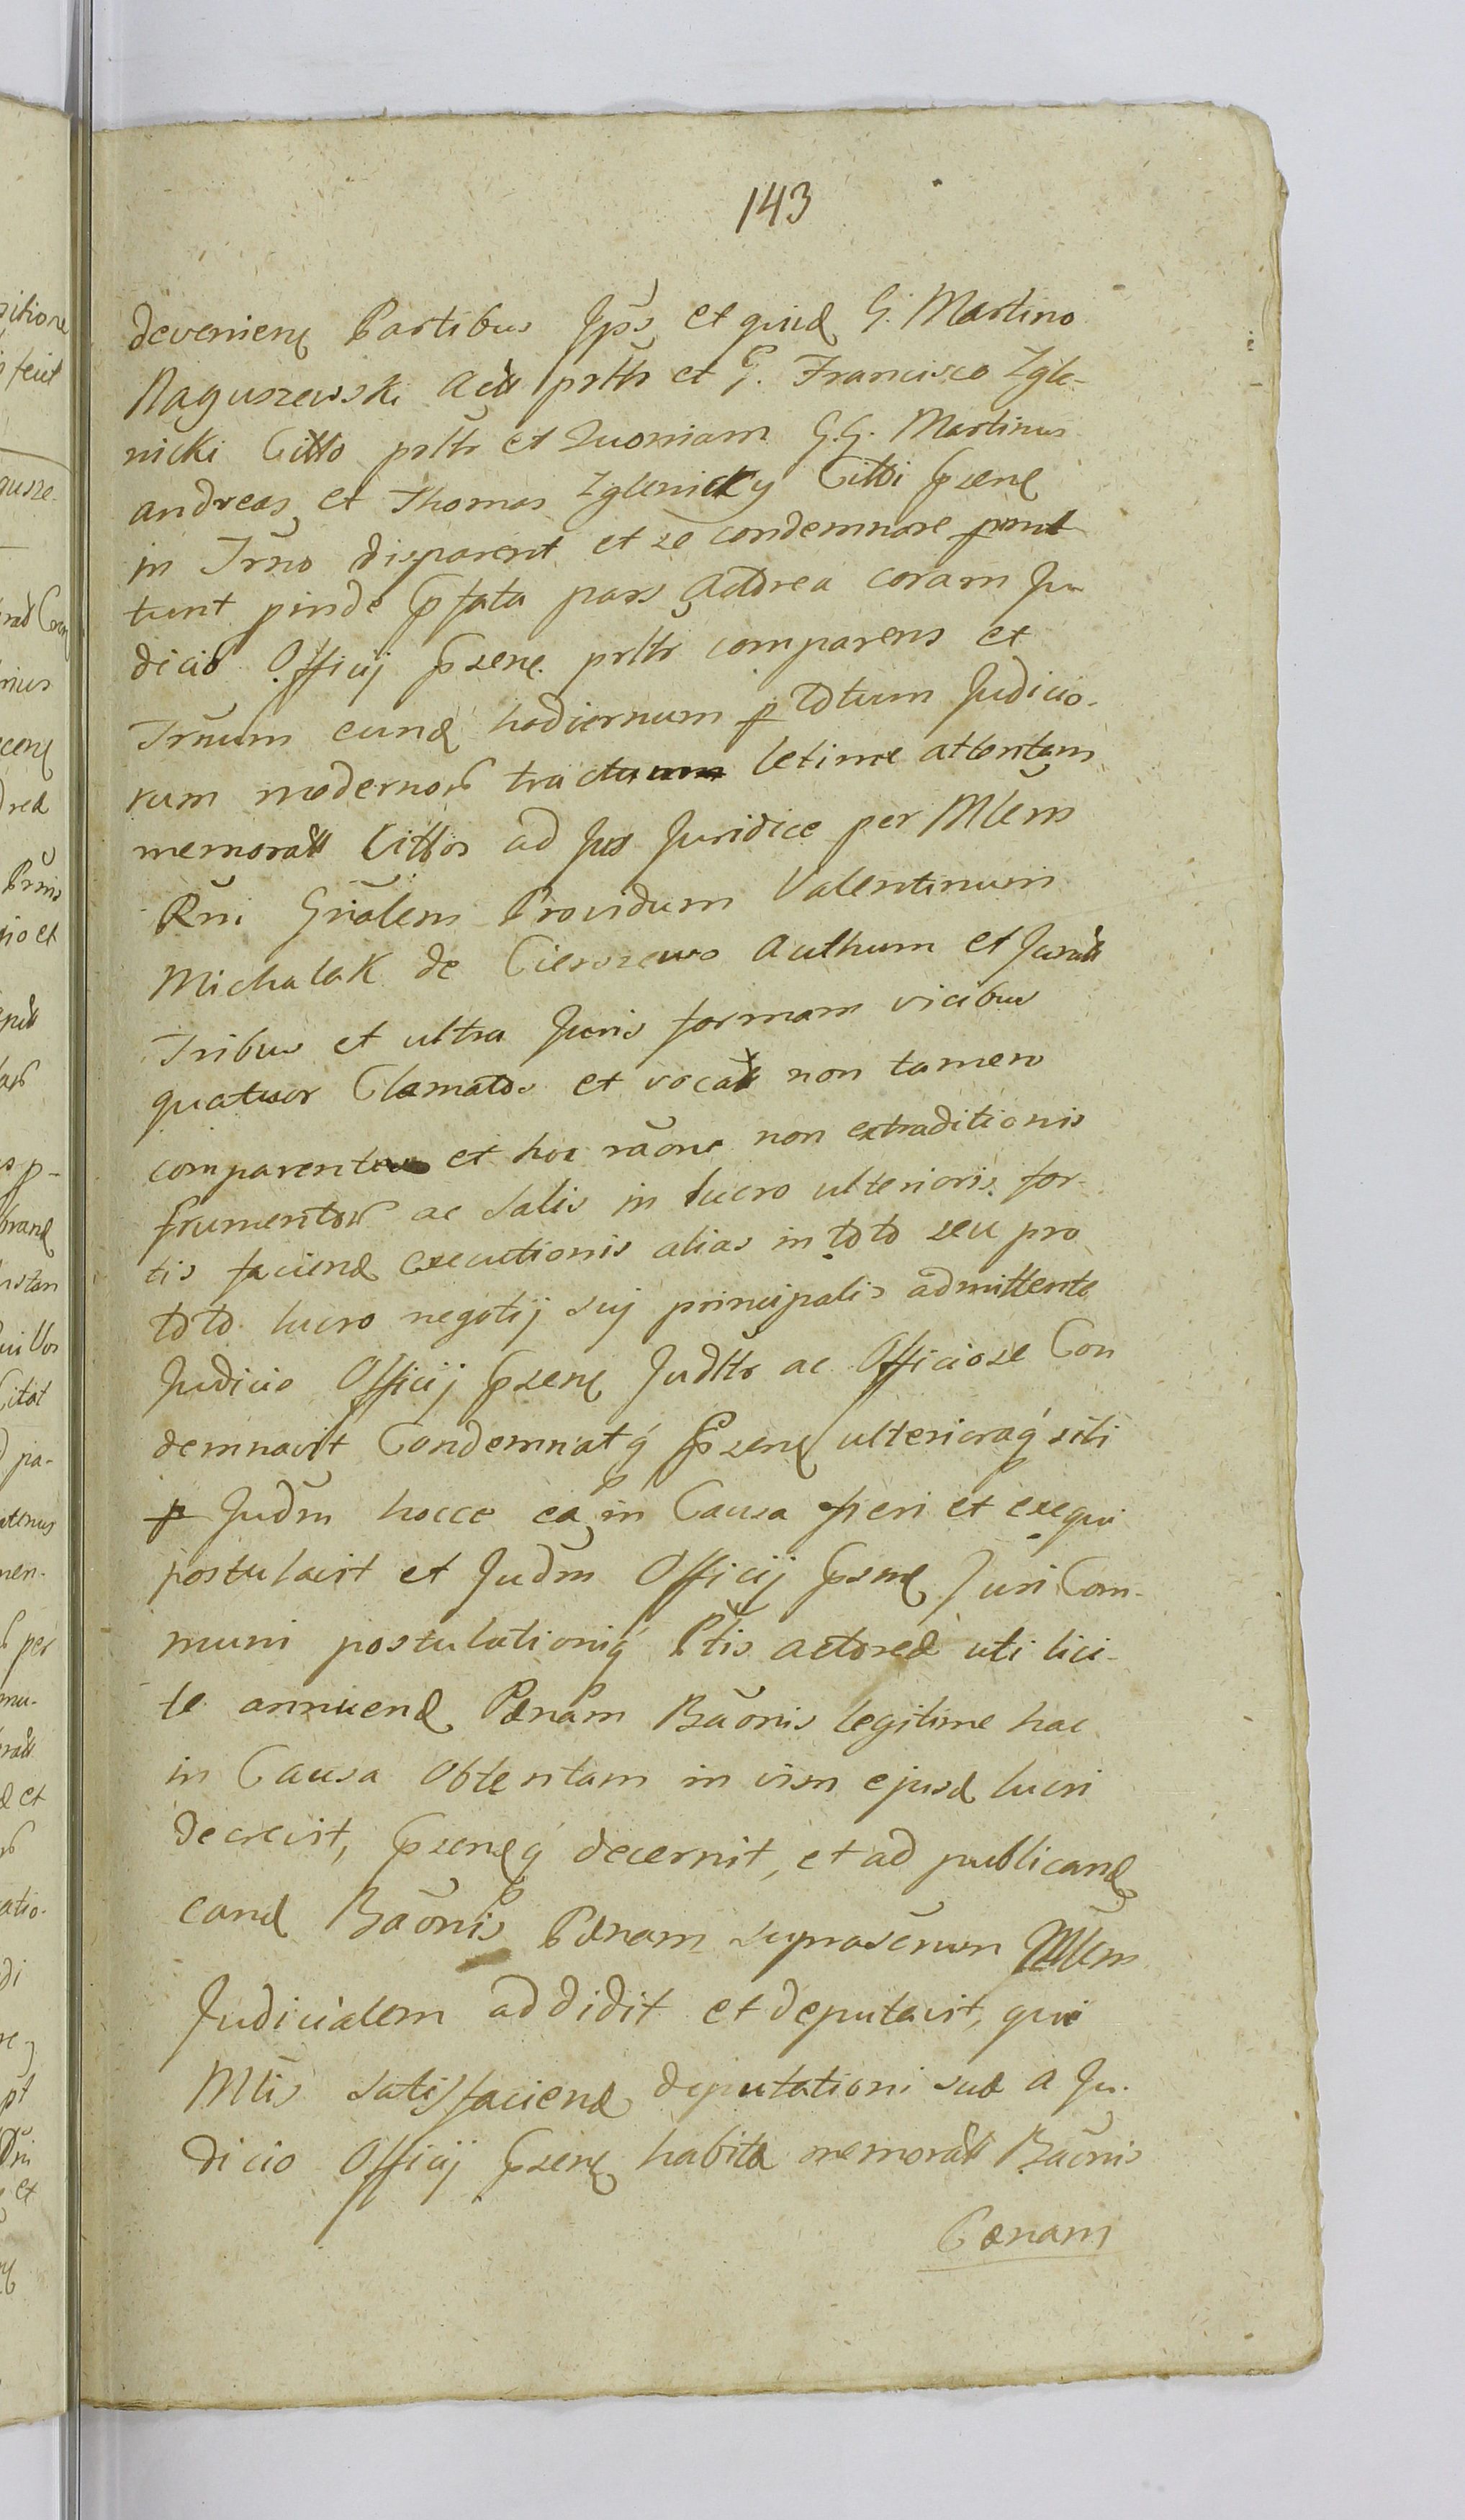 143
deveniens Partibus Jps et quid G. Martino
Naguszewski Act prltr et G. Francisco Zgle-
nicki Citto prltr et Quoniam G.G. Martinus
andreas et Thomas Zglenicky Citti Prsens
in Trno disparent et se condemnare
tunt pinde Prfata pars Actorea coram Ju
dicio Officij Prsens prltr comparens et
Trnum eund hodiernum p totum Judicio-
rum modernor tractum letime attentam
memoratt Cittos ad Jus Juridice per Mlem
Rni Gnalem Providum Valentinum
Michalak de Cierszewo Authum et Juratt
Tribus et ultra Juris formam vicibus
quatuor Clamatos et vocatt non tamen
comparentes et hoc raone non extraditionis
frumentor ac salis in lucro ulterioris for-
tis faciend executionis alias in toto seu pro
toto lucro negotij suj principalis admittente
Judicio Officij Prsens Judltr ac Officiose Con
demnavit Condemnatq Prsens ulterioraq sibi
p Judm hocce ea in Causa fieri et exequi
postulavit et Judm Officij Prsens Juri Com-
muni postulationiq Ptis actoreae uti lici-
te annuend Paenam Baonis legitime hac
in Causa Obtentam in vim ejusd lucri
decrevit, Prsensq decernit, et ad publicand
cand Baonis Paenam suprascrum Mlem
Judicialem addidit et deputavit, qui
Mlis satisfaciend deputationi suae a Ju-
dicio Officij Prsens habita memoratt Baonis
Paenam